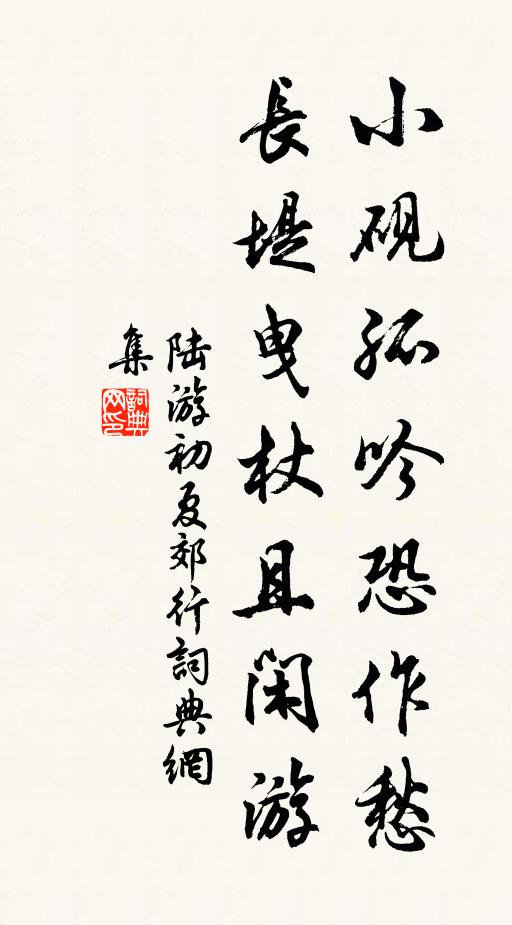 小硯孤吟恐作愁
長堤曳杖且閑游
陸游初夏郊行詞典網
集
詞典网印